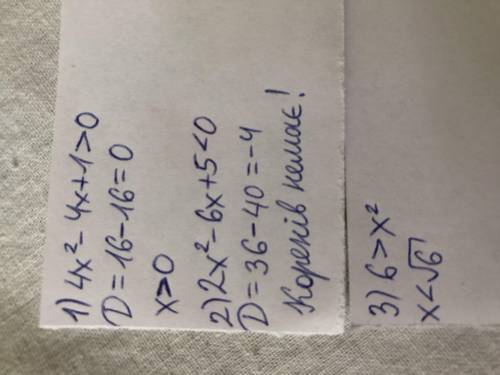 1) 4x² - 4x + 1 > 0
D = 16 - 16 = 0
x > 0
2) 2x² - 6x + 5 < 0
D = 36 - 40 = -4
Коренів немає!
3) 6 > x²
x < √6